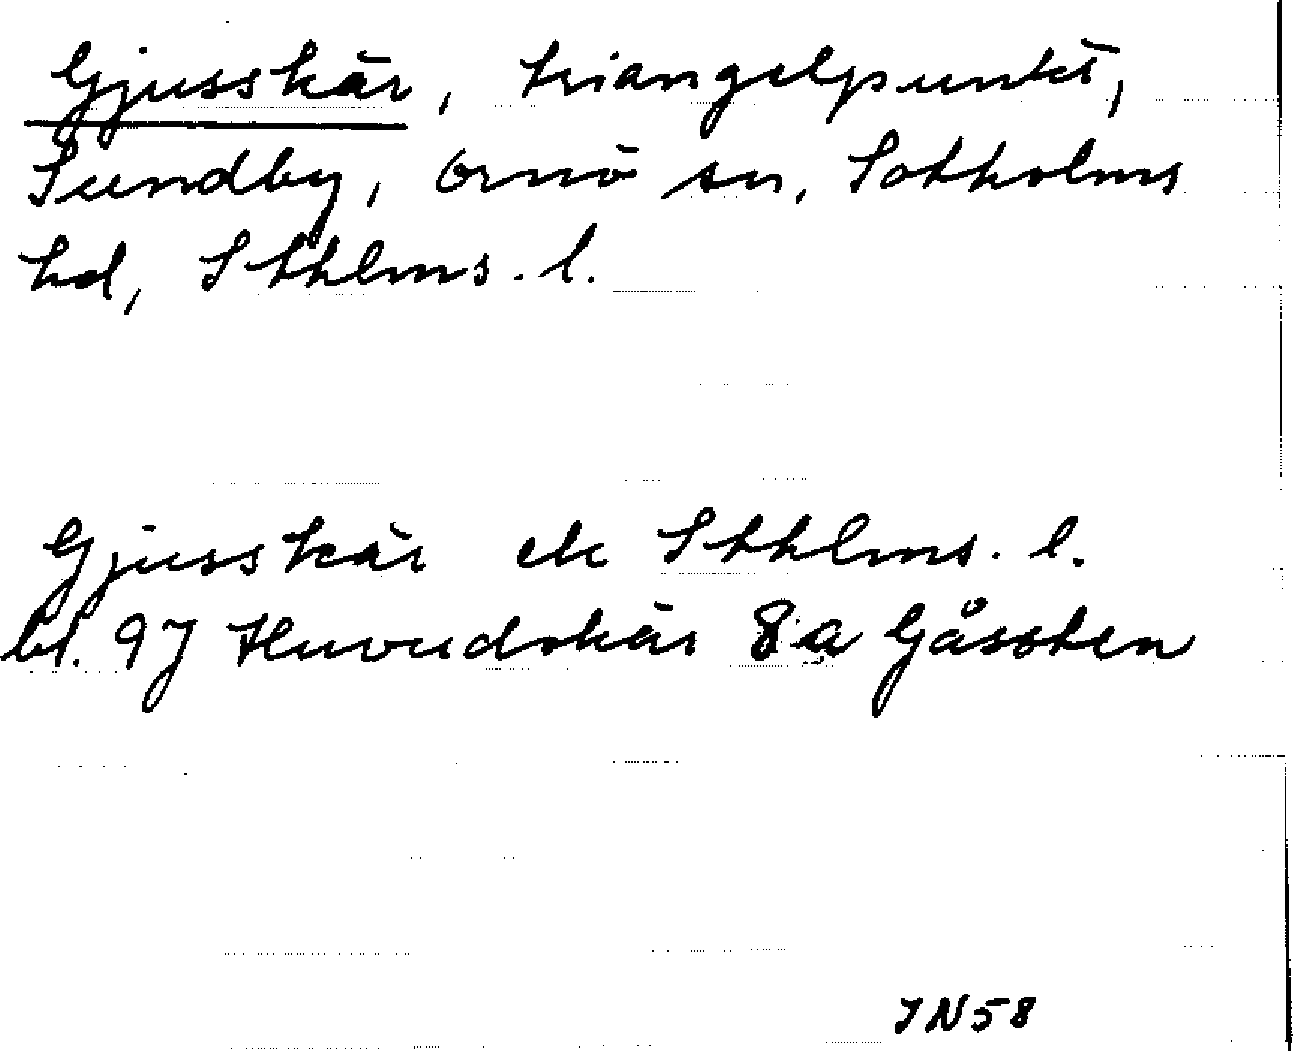 Gjusskär, triangelpunkt,
Sundby, Ornö sn, Sotholms
hd, Sthlms. l.
Gjusskär ek Sthlms. l.
bl. 97 Huvudskär 8a Gåssten
JN58